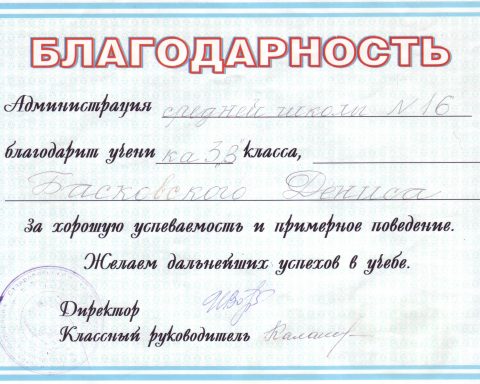 БЛАГОДАРНОСТЬ
Администрация средней школы N 16
благодарит учени ка 3"В" класса,
Басковского Дениса
За хорошую успеваемость и примерное поведение.
Желаем дальнейших успехов в учебе.
Директор
Классный руководитель